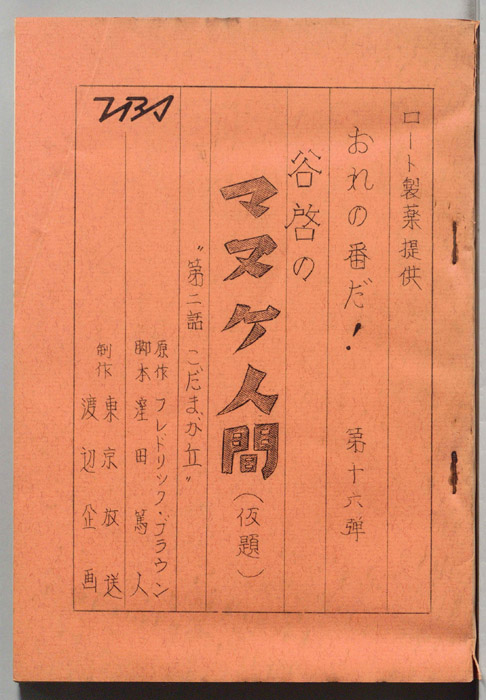 TBS
ロート製薬提供
おれの番だ！ 第十六弾
谷啓の
マヌケ人間（仮題）
〝第二話 こだまが丘〟
原作 フレドリック・ブラウン
脚本 窪田篤人
制作 東京放送
渡辺企画